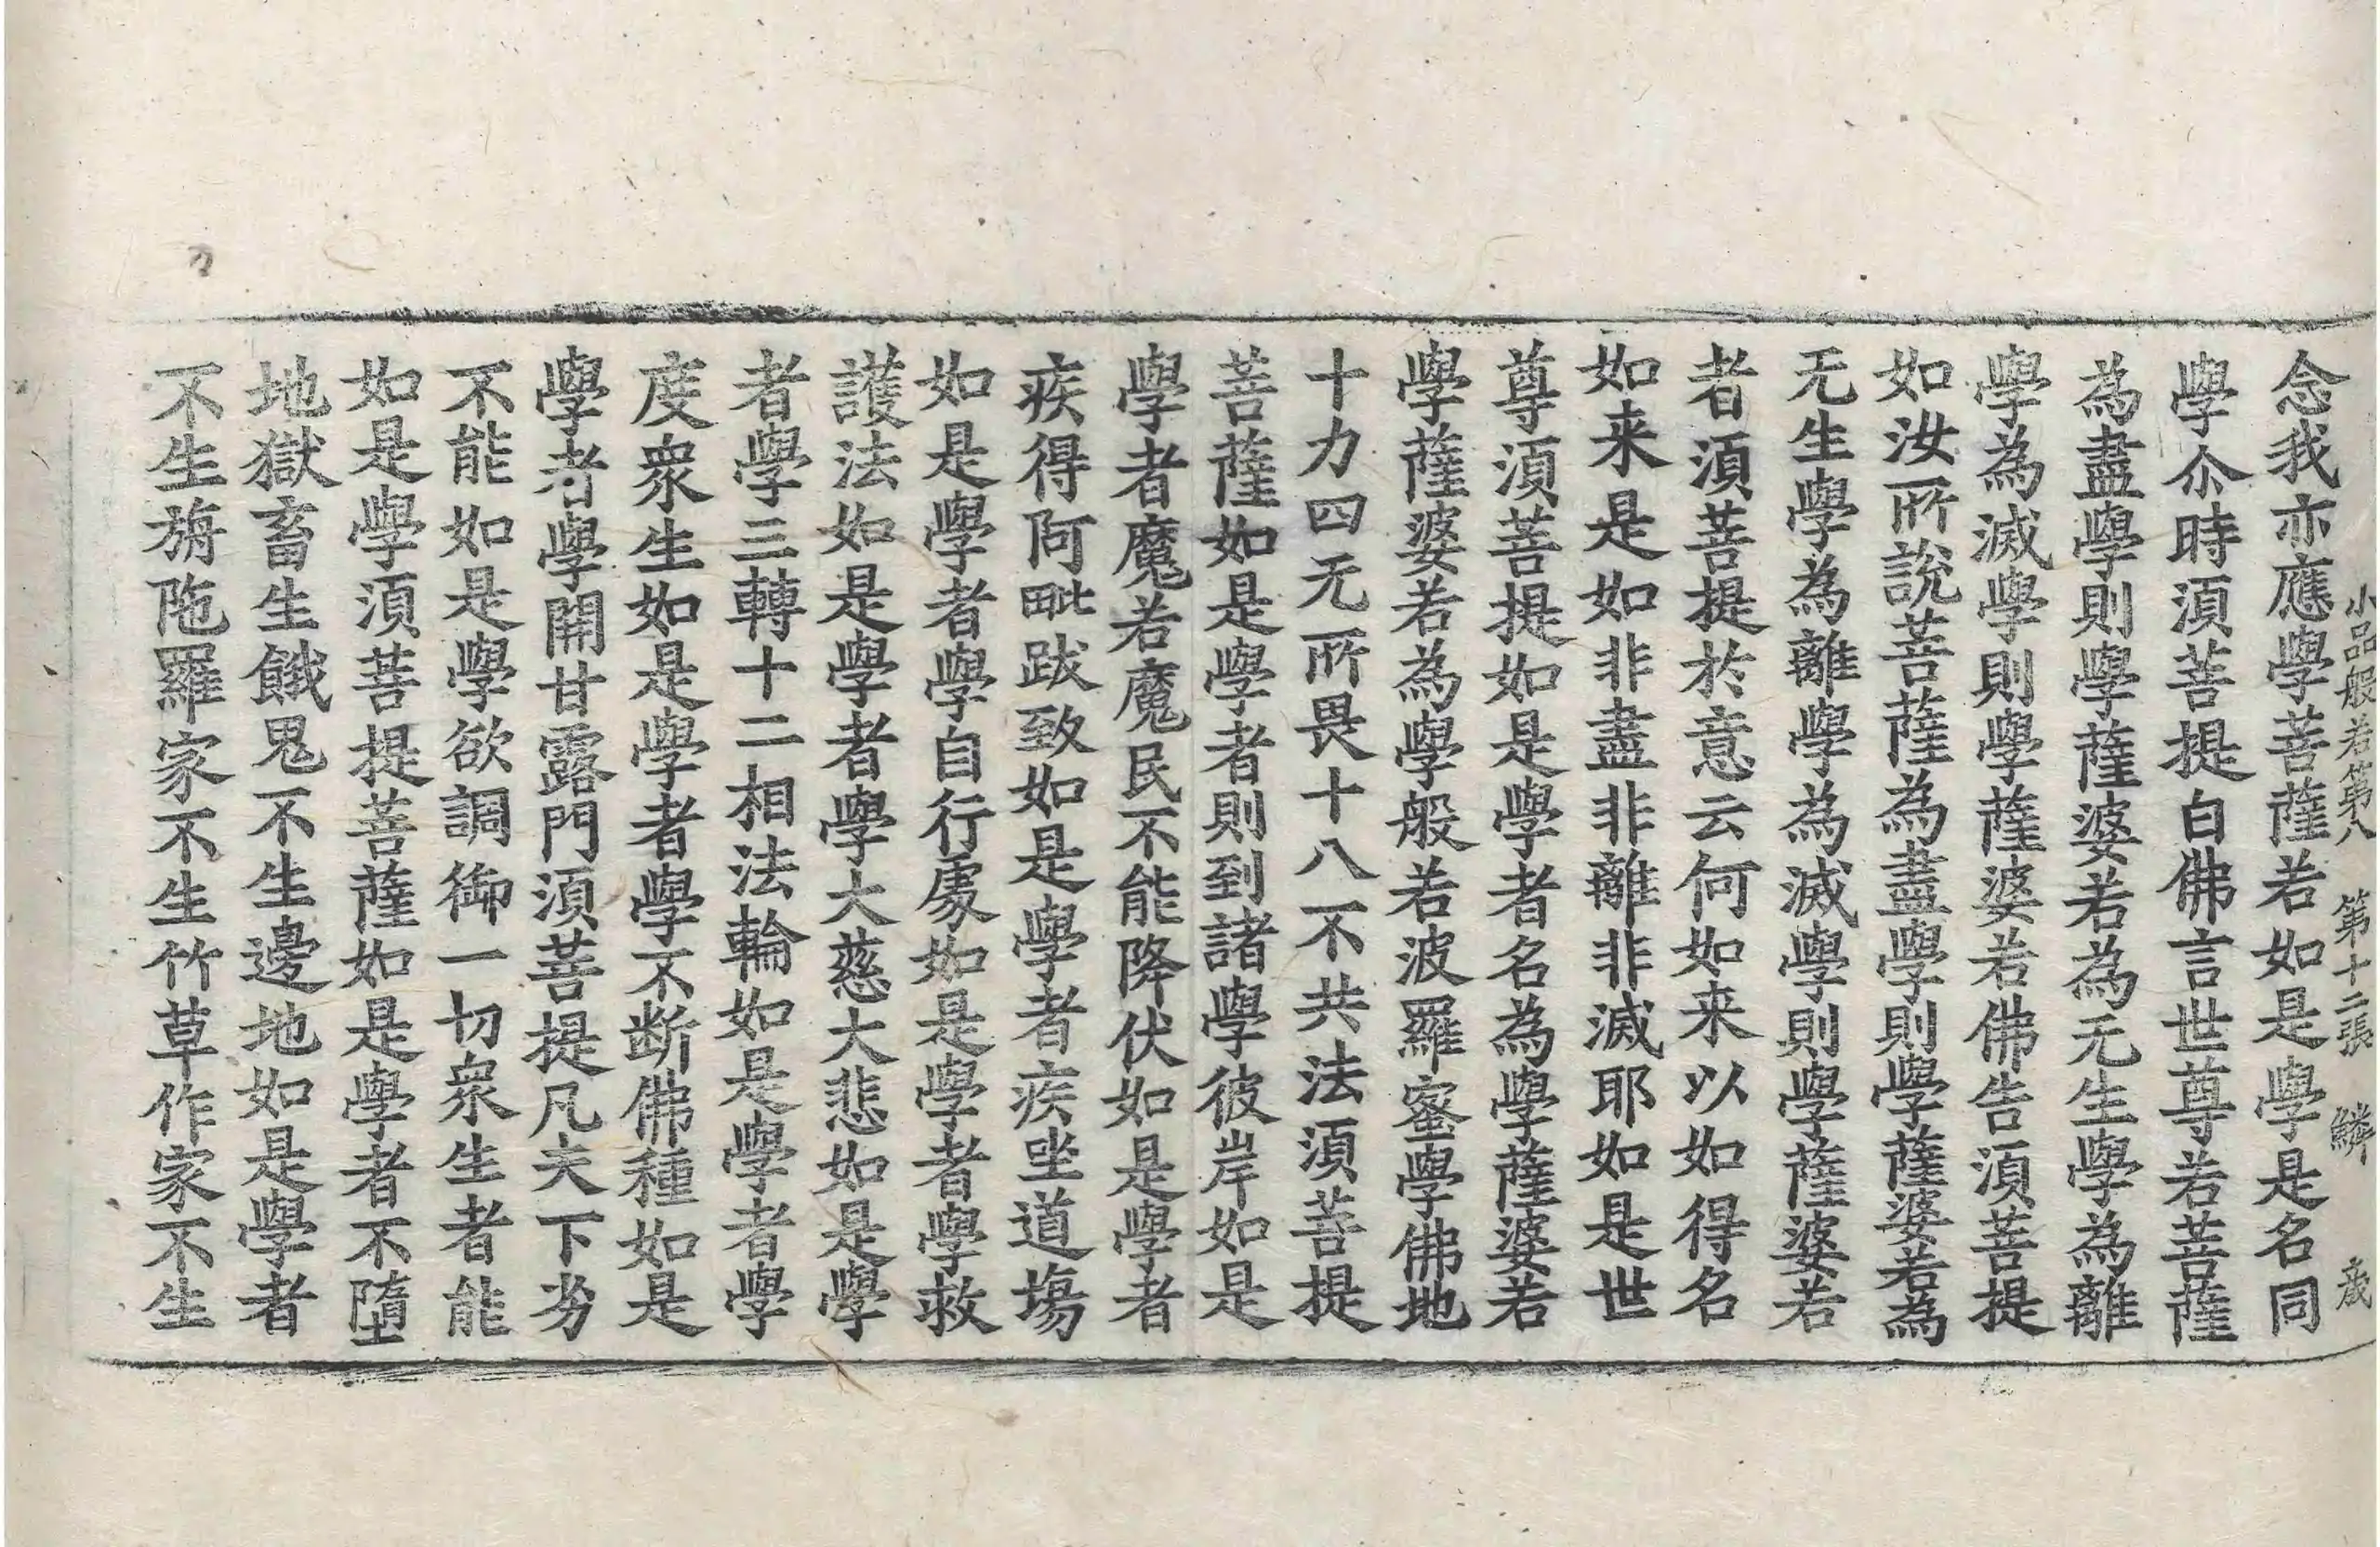 小品般若第八 第十二張 鱗
念我亦應學菩薩若如是學是名同
學尒時湏菩提白佛言世尊若菩薩
為盡學則學薩婆若為无生學為離
學為滅學則學薩婆若佛告湏菩提
如汝所說菩薩為盡學則學薩婆若為
无生學為離學為滅學則學薩婆若
者湏菩提於意云何如来以如得名
如来是如非盡非離非滅耶如是世
尊湏菩提如是學者名為學薩婆若
學薩婆若為學般若波羅蜜學佛地
十力四无所畏十八不共法湏菩提
菩薩如是學者則到諸學彼岸如是
學者魔若魔民不能降伏如是學者
疾得阿毗跋致如是學者疾坐道場
如是學者學自行處如是學者學救
護法如是學者學大慈大悲如是學
者學三轉十二相法輪如是學者學
度衆生如是學者學不断佛種如是
學者學開甘露門湏菩提凡夫下劣
不能如是學欲調御一切衆生者能
如是學湏菩提菩薩如是學者不墮
地獄畜生餓鬼不生邊地如是學者
不生旃陁羅家不生竹草作家不生